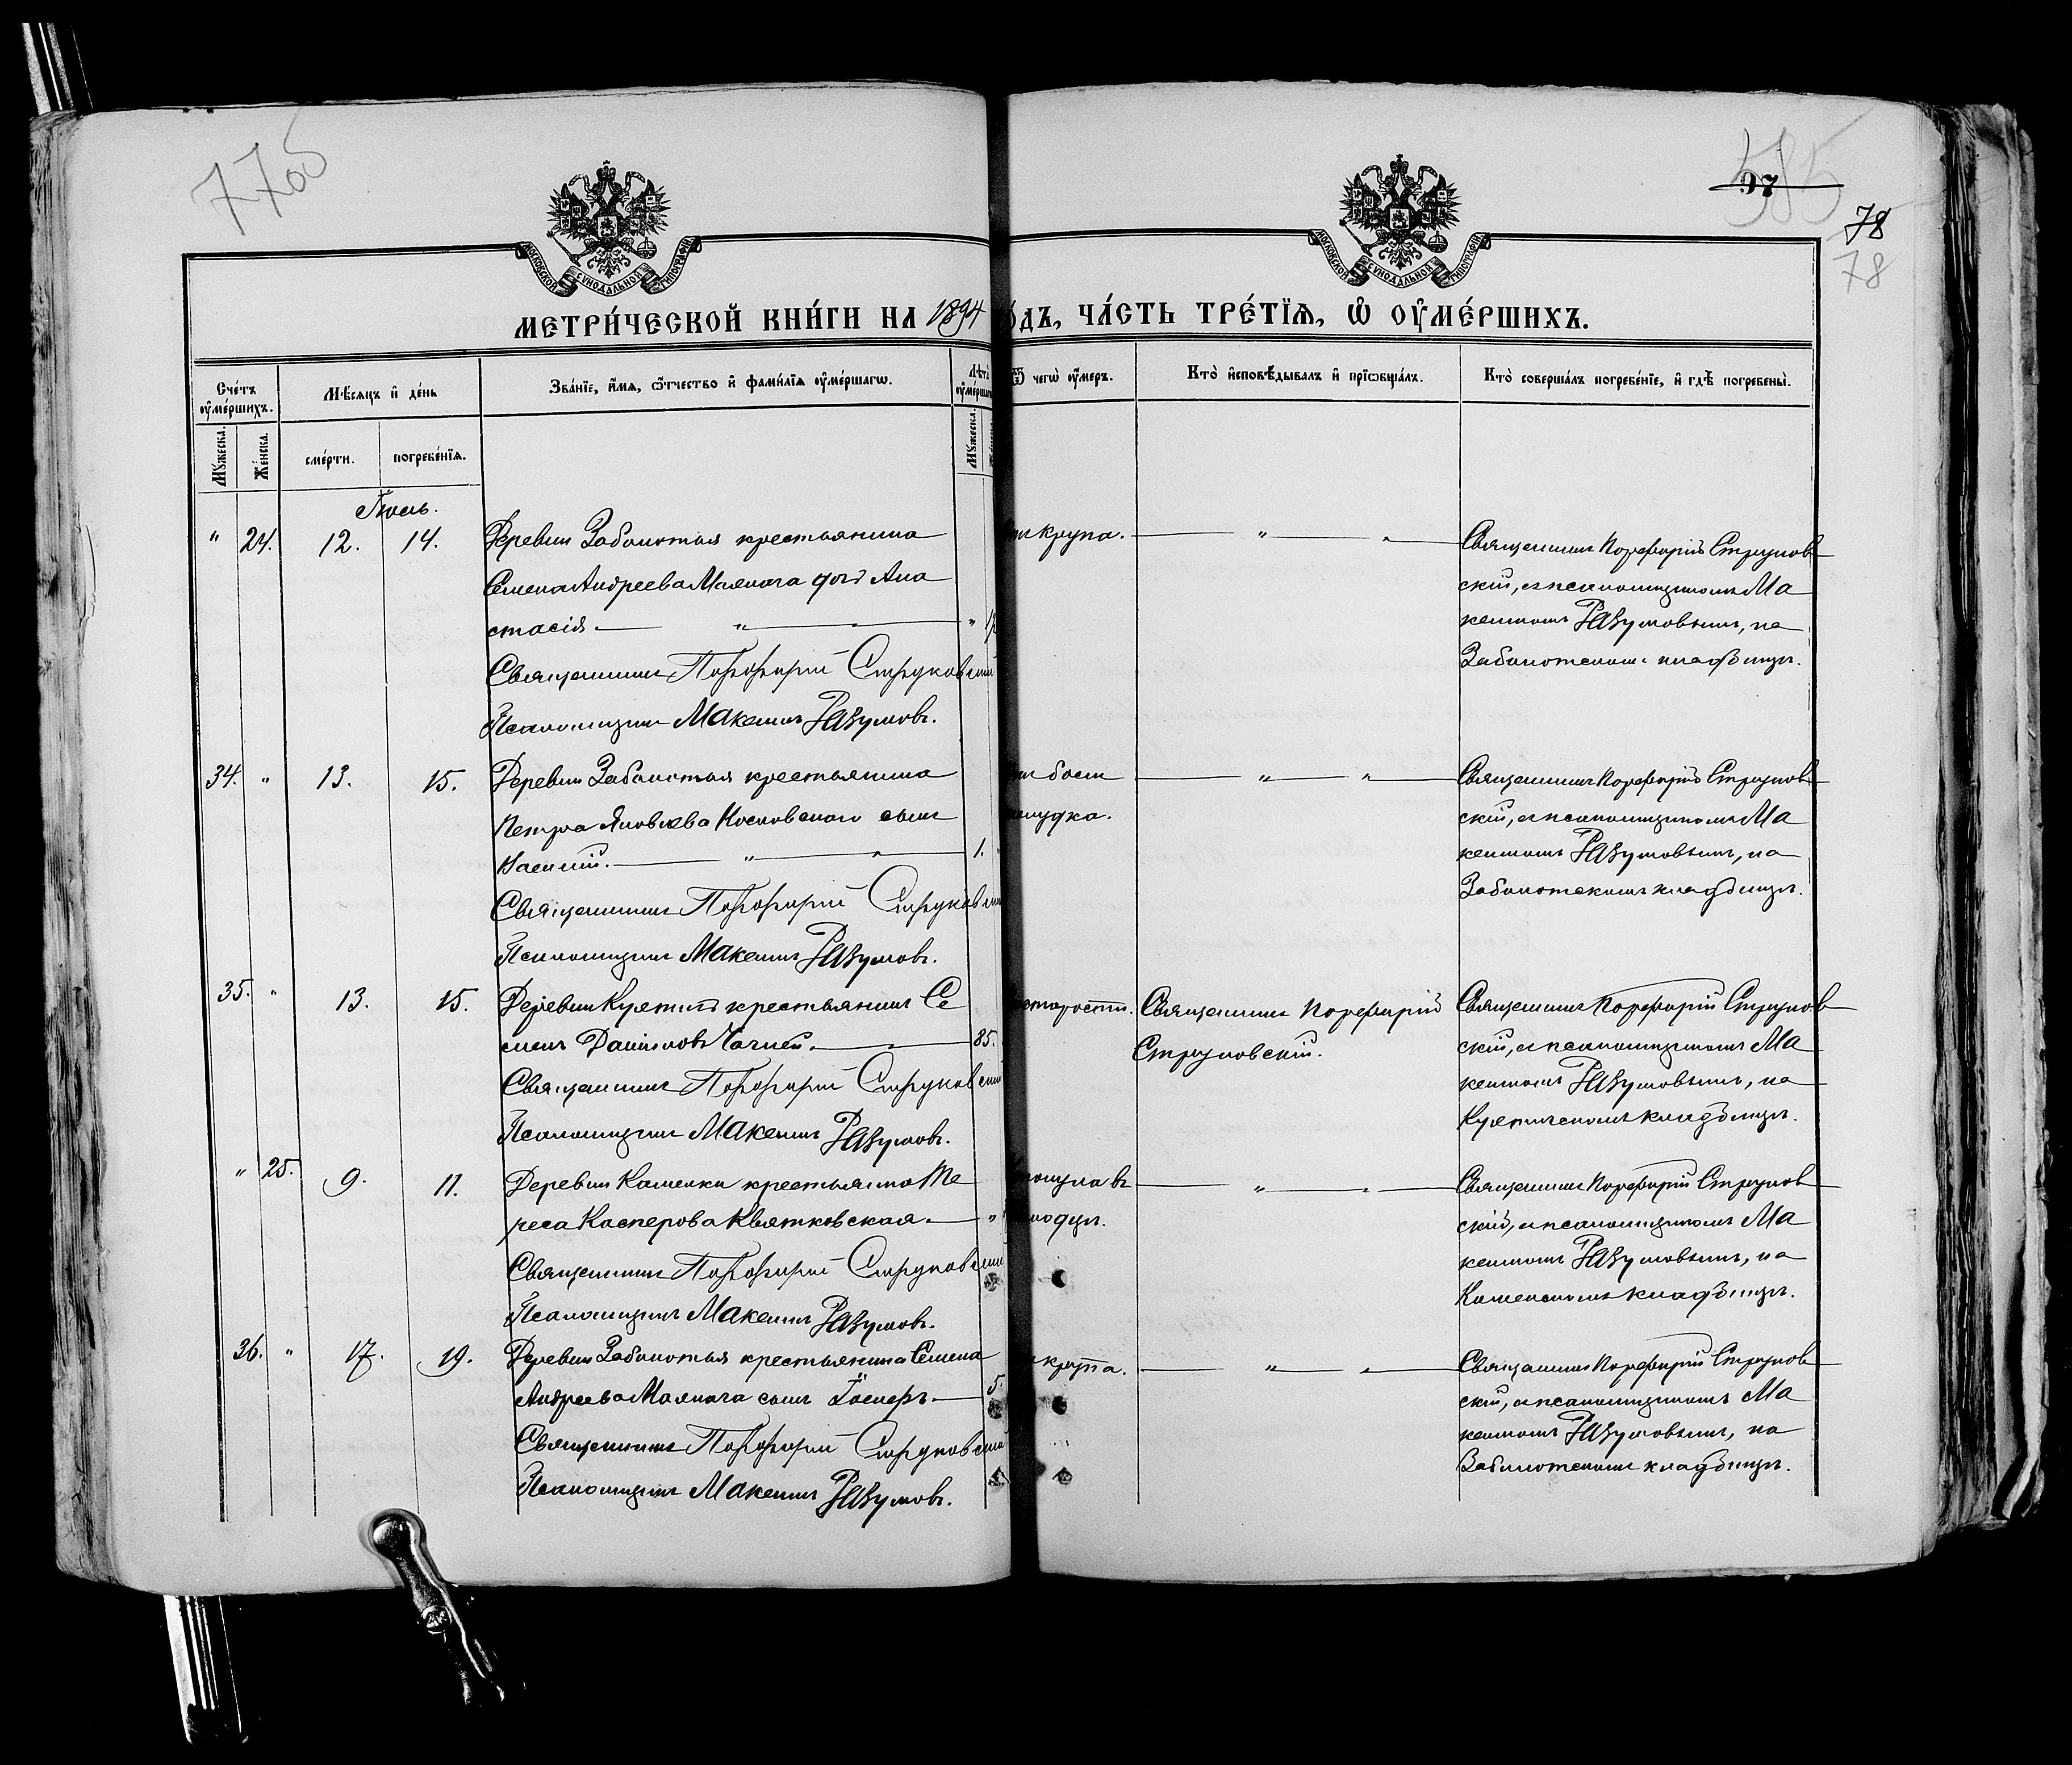 77об
97
78
78
МОСКОВСКОЙ СѴНОДАЛЬНОЙ ТИПОГРАФІИ
МОСКОВСКОЙ СѴНОДАЛЬНОЙ ТИПОГРАФІИ
МЕТРИ́ЧЕСКОЙ КНИ́ГИ НА 1894
ОДЪ, ЧА́СТЬ ТРЕ́ТЇѦ, Ѡ҆ ОУ҆МЕ́РШИХЪ.
Сче́тъ оу҆ме́ршихъ.
Мѣ́сѧцъ и҆ де́нь
Зва́нїе, и҆́мѧ, ѻ҆́тчество и҆ фами́лїѧ оу҆ме́ршагѡ.
Лѣта̀ оу҆ме́рша
Ѿ чегѡ̀ оу҆́меръ.
Кто̀ и҆сповѣ́дывалъ и҆ прїѡбща́лъ.
Кто̀ соверша́лъ погребе́нїе, и҆ гдѣ̀ погребены̀.
Мꙋ́жеска.
Же́нска.
сме́рти.
погребе́нїѧ.
Мꙋ́жеска.
Іюль.
" 24. 12. 14. Деревни Заболотья крестьянина
Семена Андреева Маянога дочь Ана
стасія. — " — "
Священникъ Порфирій Струковскій
Псаломщикъ Максимъ Разумовъ.
крупа. — " — "
Священникъ Порфирій Струков
скій, съ псаломщикомъ Ма
ксимомъ Разумовымъ, на
Заболотскомъ кладбищѣ.
34. " 13. 15. Деревни Заболотья крестьянина
Петра Яковлева сынъ
Василій. — " — 1.
Священникъ Порфирій Струковскій
Псаломщикъ Максимъ Разумовъ.
боли
желудка. — " — "
Священникъ Порфирій Струков
скій, съ псаломщикомъ Ма
ксимомъ Разумовымъ, на
Заболотскомъ кладбищѣ.
35. " 13. 15. Деревни крестьянинъ Се
менъ Даниловъ — 85.
Священникъ Порфирій Струковскій
Псаломщикъ Максимъ Разумовъ.
старости. Священникъ Порфирій
Струковскій.
Священникъ Порфирій Струков
скій, съ псаломщикомъ Ма
ксимомъ Разумовымъ, на
кладбищѣ.
" 25. 9. 11. Деревни Каменки крестьянка Те
реса Касперова Квятковская. — "
Священникъ Порфирій Струковскій
Псаломщикъ Максимъ Разумовъ.
— " — "
Священникъ Порфирій Струков
скій, съ псаломщикомъ Ма
ксимомъ Разумовымъ, на
Каменскомъ кладбищѣ.
36. " 17. 19. Деревни Заболотья крестьянина Семена
Андреева Маянога сынъ Іосифъ — 5.
Священникъ Порфирій Струковскій
Псаломщикъ Максимъ Разумовъ.
крупа. — " — "
Священникъ Порфирій Струков
скій, съ псаломщикомъ Ма
ксимомъ Разумовымъ, на
Заболотскомъ кладбищѣ.